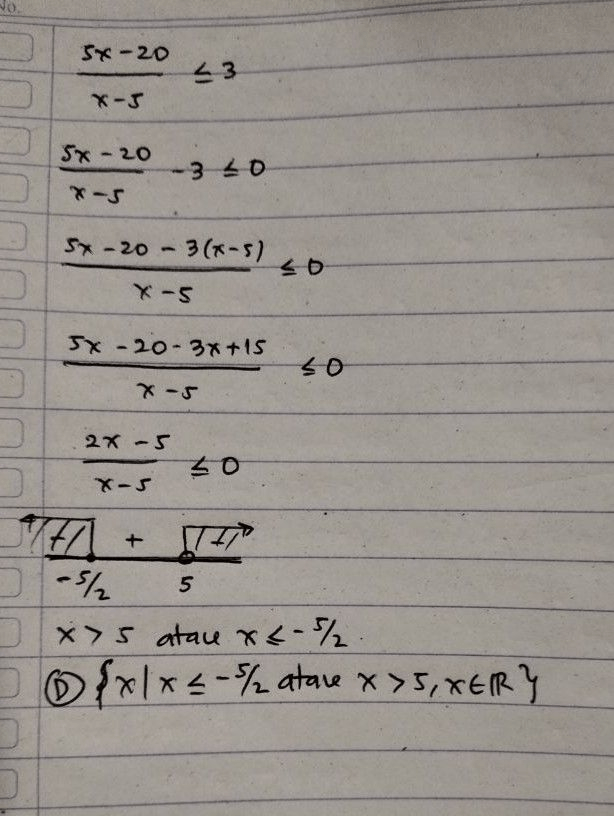 No.
5x-20 / x-5 ≤ 3
5x-20 / x-5 - 3 ≤ 0
5x-20-3(x-5) / x-5 ≤ 0
5x-20-3x+15 / x-5 ≤ 0
2x-5 / x-5 ≤ 0
+
-5/2 5
x > 5 atau x ≤ -5/2.
(D) {x | x ≤ -5/2 atau x > 5, x ∈ ℝ}